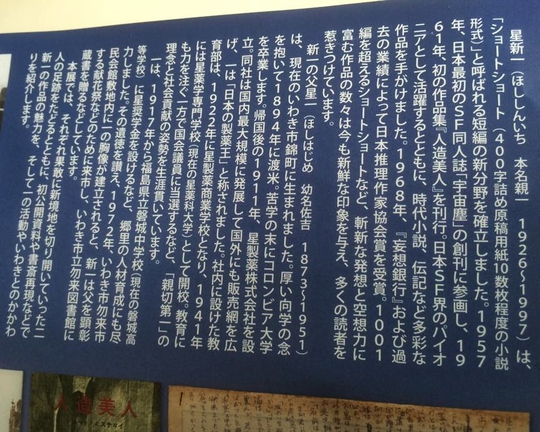 星新一（ほししんいち　本名親一　1926〜1997）は、
「ショートショート（400字詰め原稿用紙10数枚程度の小説
形式）」と呼ばれる短編の新分野を確立しました。1957
年、日本最初のSF同人誌『宇宙塵』の創刊に参画し、19
61年、初の作品集『人造美人』を刊行。日本SF界のパイオ
ニアとして活躍するとともに、時代小説、伝記など多彩な
作品を手がけました。1968年、『妄想銀行』および過
去の業績によって日本推理作家協会賞を受賞。1001
編を超えるショートショートなど、斬新な発想と空想力に
富む作品の数々は今も新鮮な印象を与え、多くの読者を
惹きつけています。
新一の父星一（ほしはじめ　幼名佐吉　1873〜1951）
は、現在のいわき市錦町に生まれました。厚い向学の念
を抱いて1894年に渡米。苦学の末にコロンビア大学
を卒業します。帰国後の1911年、星製薬株式会社を設
立。同社は国内最大規模に発展して国外にも販売網を広
げ、一は「日本の製薬王」と称されました。社内に設けた教
育部は、1922年に星製薬商業学校となり、1941年
には星薬学専門学校（現在の星薬科大学）として開校。教育に
も力を注ぐ一方で国会議員に当選するなど、「親切第一」の
理念と社会貢献の姿勢を生涯貫いています。
一は、1917年から福島県立磐城中学校（現在の磐城高
等学校）に星奨学金を設けるなど、郷里の人材育成にも尽
力しました。その遺徳を讃え、1972年、いわき市勿来市
民会館敷地内に一の胸像が建立されると、新一は父を顕彰
する献花祭などのために来市し、いわき市立勿来図書館に
蔵書を贈るなどしています。
本展では、それぞれ果敢に新境地を切り開いていった二
人の足跡をたどるとともに、初公開資料や書斎再現などで
新一の作品の魅力を、そして一の活動やいわきとのかかわ
りを紹介します。
人造美人